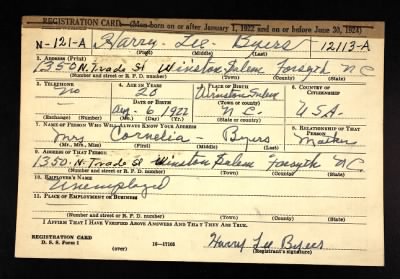 REGISTRATION CARD—(Men born on or after January 1, 1922 and on or before June 30, 1924)
N-121-A Harry - Lee - Byers 12113-A
(First) (Middle) (Last)
2. ADDRESS (Print)
1350 N. Trade St Winston Salem Forsyth N C
(Number and street or R. F. D. number) (Town) (County) (State)
3. TELEPHONE 4. AGE IN YEARS 5. PLACE OF BIRTH 6. COUNTRY OF CITIZENSHIP
No 20 Winston Salem
DATE OF BIRTH (Town or county)
Aug. 6 1922 N C. U.S.A.
(Exchange) (Number) (Mo.) (Day) (Yr.) (State or country)
7. NAME OF PERSON WHO WILL ALWAYS KNOW YOUR ADDRESS 8. RELATIONSHIP OF THAT PERSON
Mrs Cornelia - Byers Mother
(Mr., Mrs., Miss) (First) (Middle) (Last)
9. ADDRESS OF THAT PERSON
1350 N. Trade St Winston Salem Forsyth N C.
(Number and street or R. F. D. number) (Town) (County) (State)
10. EMPLOYER'S NAME
Unemployed
11. PLACE OF EMPLOYMENT OR BUSINESS
(Number and street or R. F. D. number) (Town) (County) (State)
I AFFIRM THAT I HAVE VERIFIED ABOVE ANSWERS AND THAT THEY ARE TRUE.
REGISTRATION CARD
D. S. S. Form 1 (over) Harry Lee Byers
(Registrant's signature)